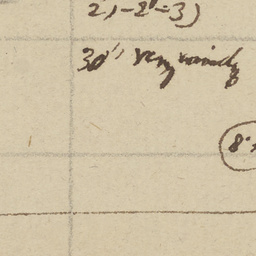 2)-2'=3)
30'' very windy
8